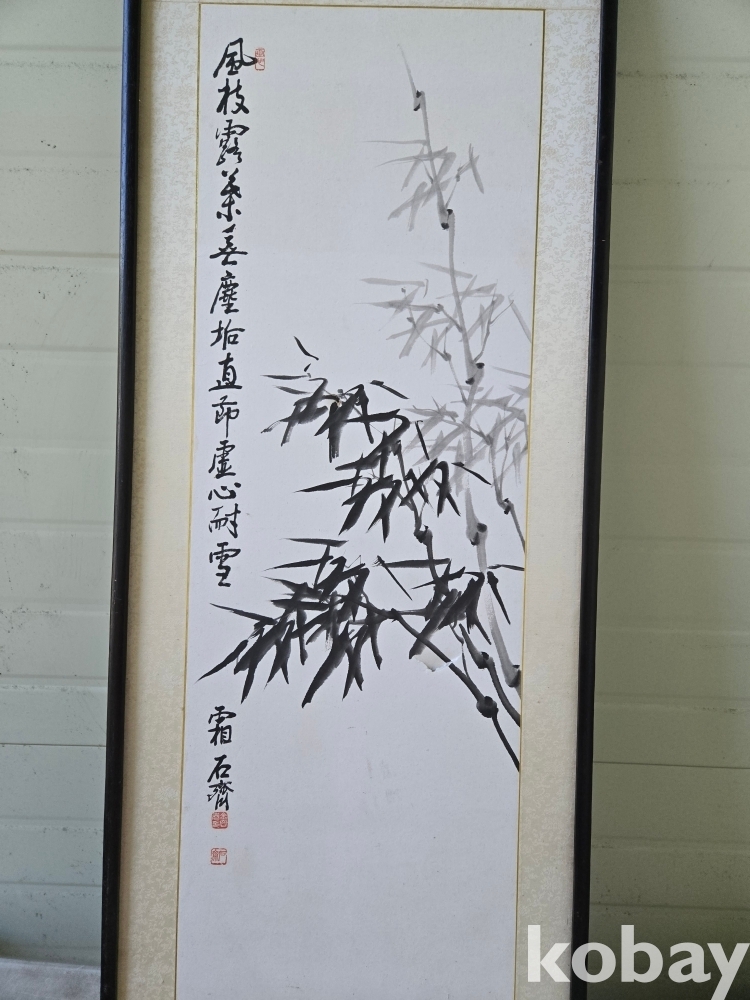 風枝露葉無塵垢直節虛心耐雪
霜石齊
kobay